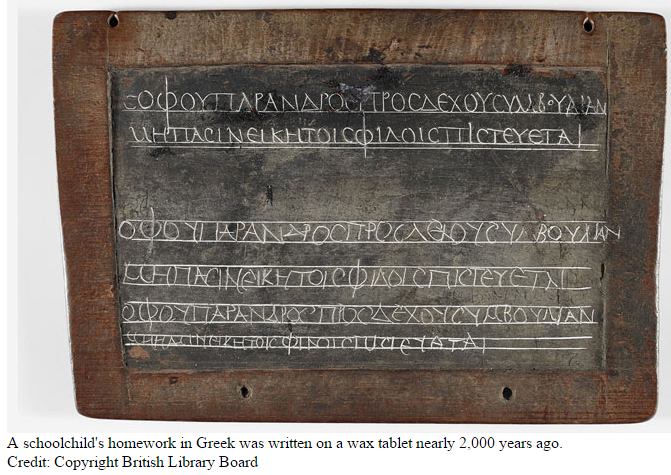 CΟΦΟΥΠΑΡΑΝΔΡΟCΠΡΟCΔΕΧΟΥCΥΜΒΟΥΛΙΑΝ
ΜΗΠΑCΙΝΕΙΚΗΤΟΙCΦΙΛΟΙCΠΙCΤΕΥΕΤΑΙ
ΟΦΟΥΠΑΡΑΝΔΡΟCΠΡΟCΔΕΧΟΥCΥΜΒΟΥΛΙΑΝ
ΜΗΠΑCΙΝΕΙΚΗΤΟΙCΦΙΛΟΙCΠΙCΤΕΥΕΤΑΙ
ΟΦΟΥΠΑΡΑΝΔΡΟCΠΡΟCΔΕΧΟΥCΥΜΒΟΥΛΙΑΝ
ΜΗΠΑCΙΝΕΙΚΗΤΟΙCΦΙΛΟΙCΠΙCΤΕΥΕΤΑΙ
A schoolchild's homework in Greek was written on a wax tablet nearly 2,000 years ago.
Credit: Copyright British Library Board